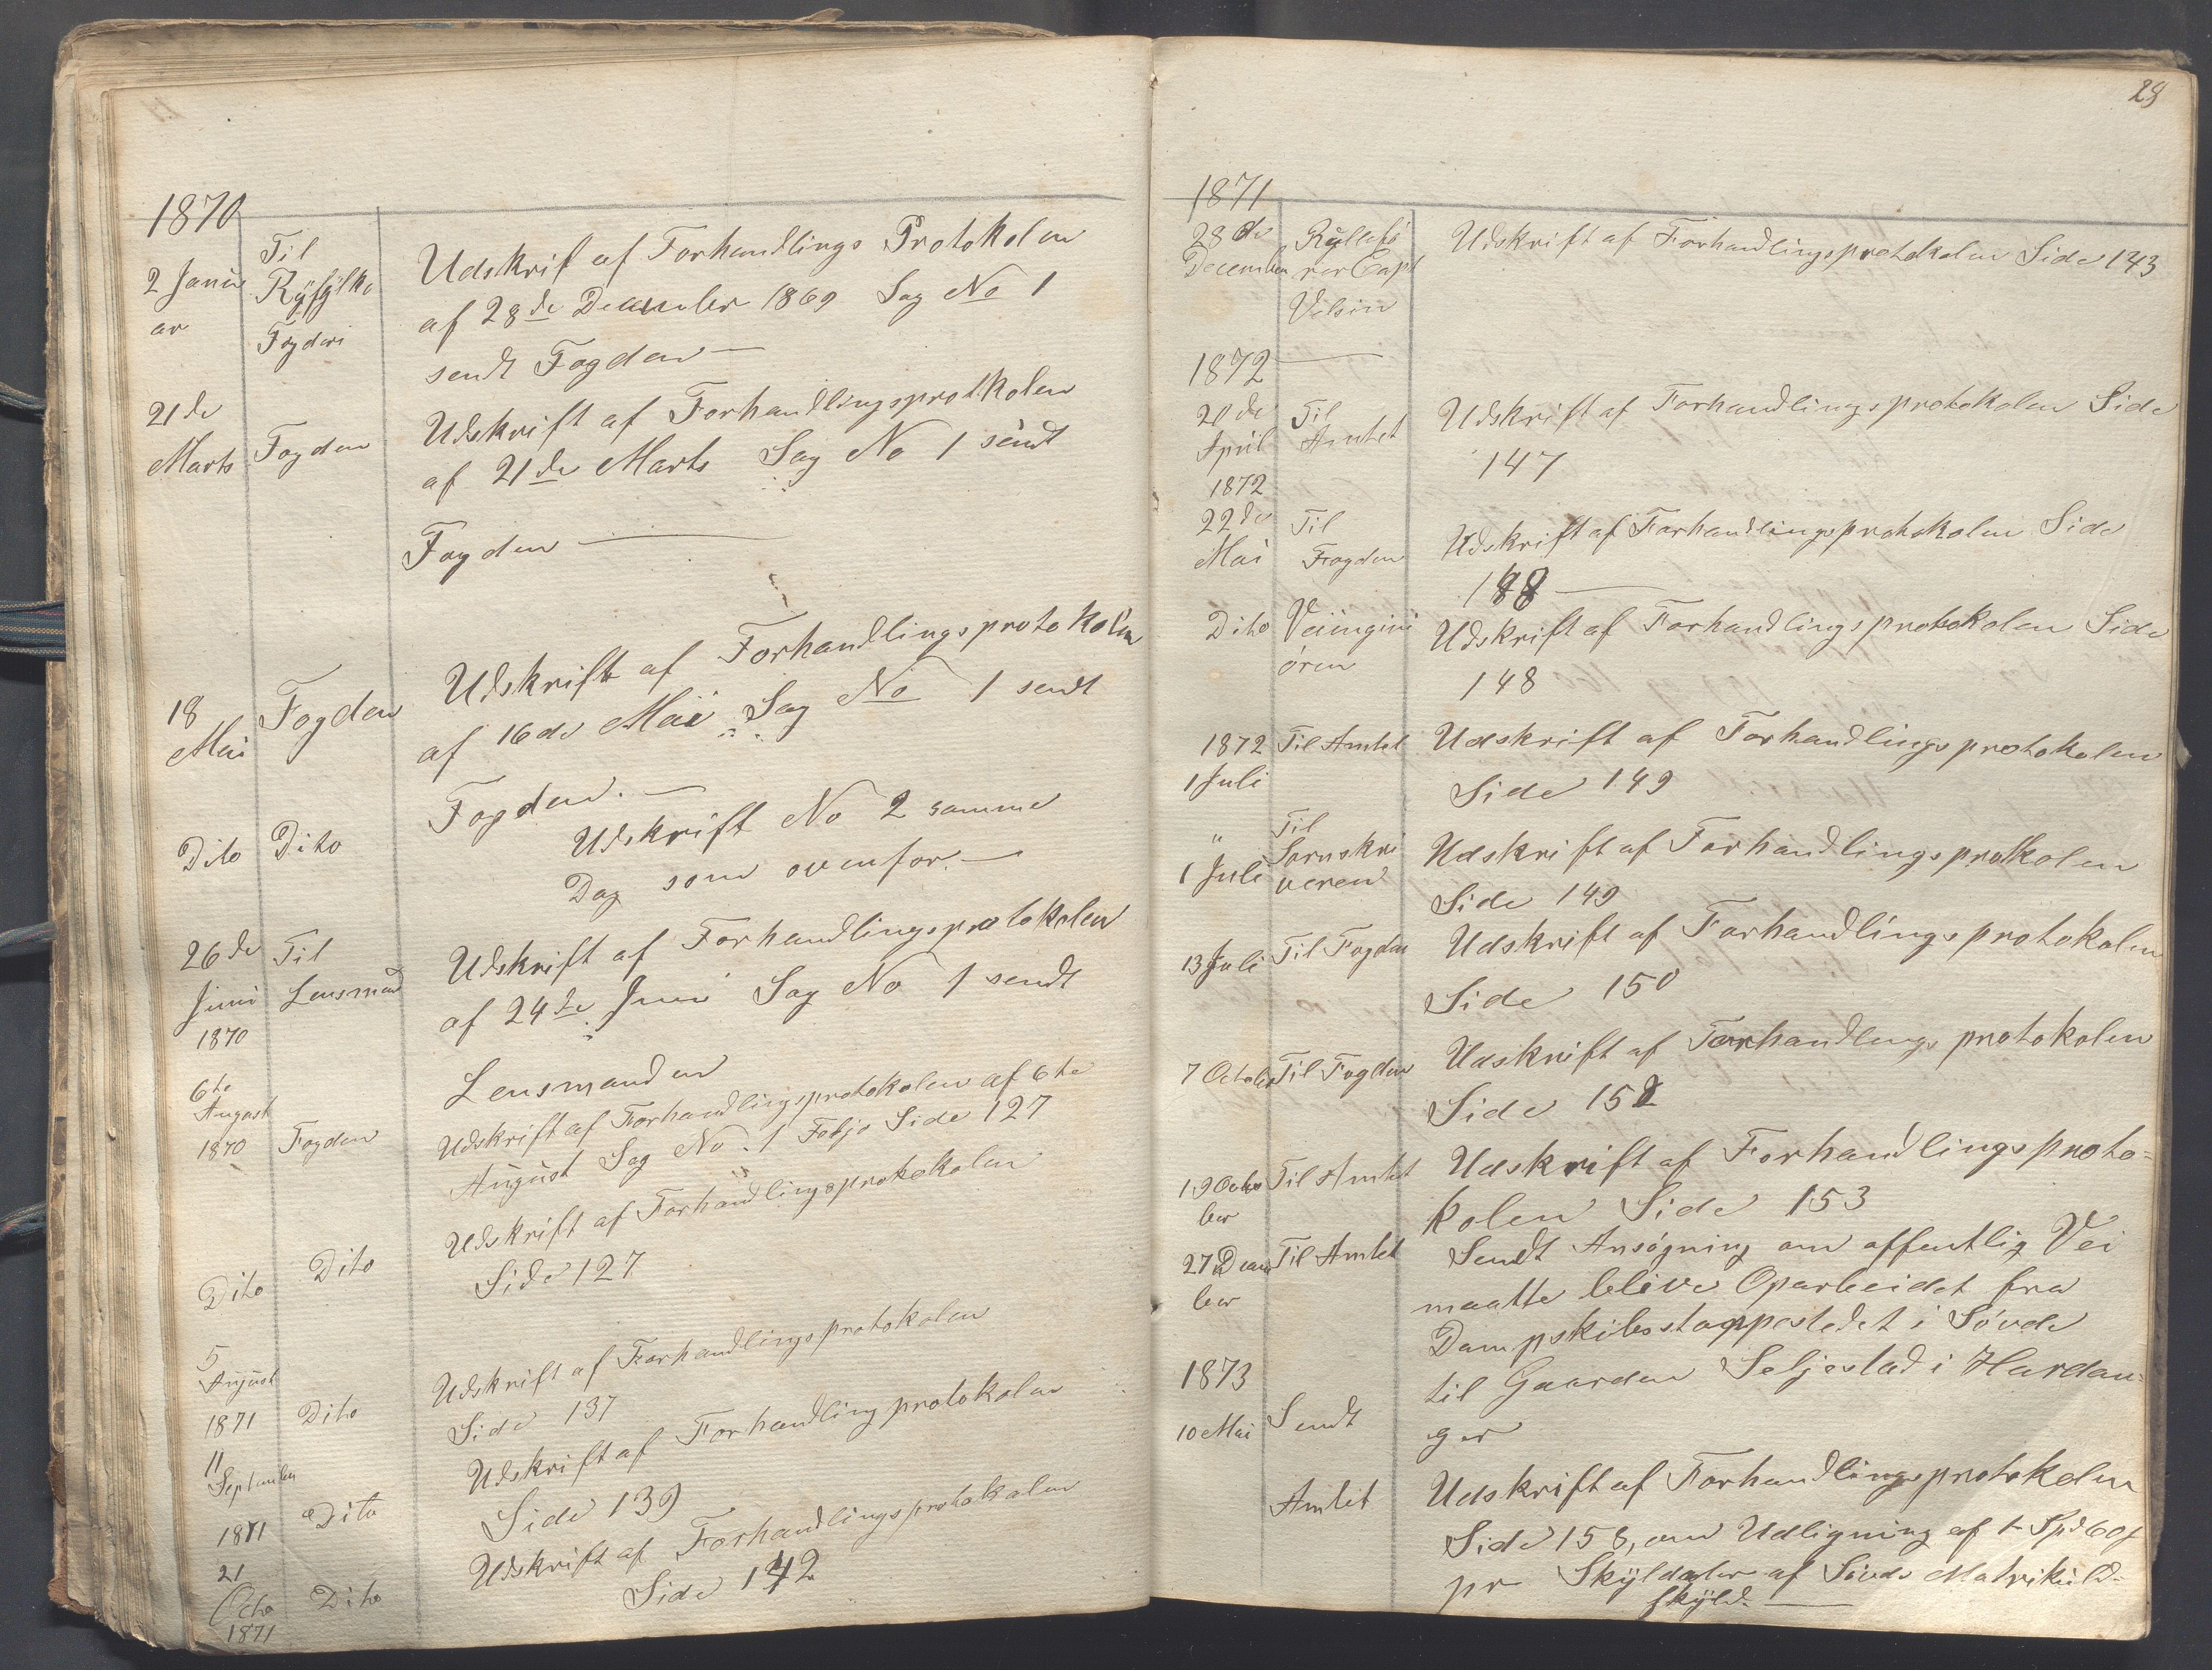 1870
2 Janu
ar
Til
Ryfylke
Fogderi
Udskrif af Forhandlings Protokolen
af 28de December 1869 Sag No 1
sendt Fogden —
21de
Marts
Fogden
Udskrift af Forhandlingsprotkolen
af 21de Marts Sag No 1 sendt
Fogden —
18
Mai
Fogden
Udskrift af Forhandlingsprotokolen
af 16de Mai Sag No 1 sendt
Fogden. —
Dito
Dito
Udskrift No 2 samme
Dag som ovenfor. —
26de
Juni
1870
Til
Lensmand
Udskrift af Forhandlingsprotokolen
af 24de Juni Sag No 1 sendt
Lensmanden
6te
August
1870
Fogden
Udskrift af Forhandlingsprotokolen af 6te
August Sag No 1 Side 127
Dito
Dito
Udskrift af Forhandlingsprotokolen
Side 127
5
August
1871
Dito
Udskrift af Forhandlingsprotokolen
Side 137
11
September
1871
Dito
Udskrift af Forhandlingprotokolen
Side 139
21
Octo
1871
Dito
Udskrift af Forhandlingsprotokolen
Side 142
29
1871
28de
December
Rullefø
rer Capt
Udskrift af Forhandlingsprotokolen Side 143
1872 —
20de
April
1872
Til
Amtet
Udskrift af Forhandlingsprotokolen Side
147
22de
Mai
Til
Fogden
Udskrift af Forhandlingsprotokolen Side
188 —
Dito
Veiingini
øren
Udskrift af Forhandlingsprotokolen Side
148
1872
1 Juli
Til Amtet
Udskrift af Forhandlingsprotokolen
Side 149
"
1 Juli
Til
Sornskri
veren
Udskrift af Forhandlingsprotkolen
Side 149
13 Juli
Til Fogden
Udskrift af Forhandlingsprotokolen
Side 150
7 October
Til Fogden
Udskrift af Forhandlings protokolen
Side 152
19 Octo
ber
Til Amtet
Udskrift af Forhandlingsproto=
kolen Side 153
27 Decem
ber
Til Amtet
Sendt Ansøgning om offentlig Vei
maatte blive Oparbeidet fra
Dampskibsstoppestedet i Søvde
til Gaarden Seljestad i Hardan=
ger
1873
10 Mai
Sendt
Amtet
Udskrift af Forhandlingsprotokolen
Side 158, om Udligning af 1 Spd 60 ſ
pr Skyldaler af Søvde Matrikuld=
skyld. —